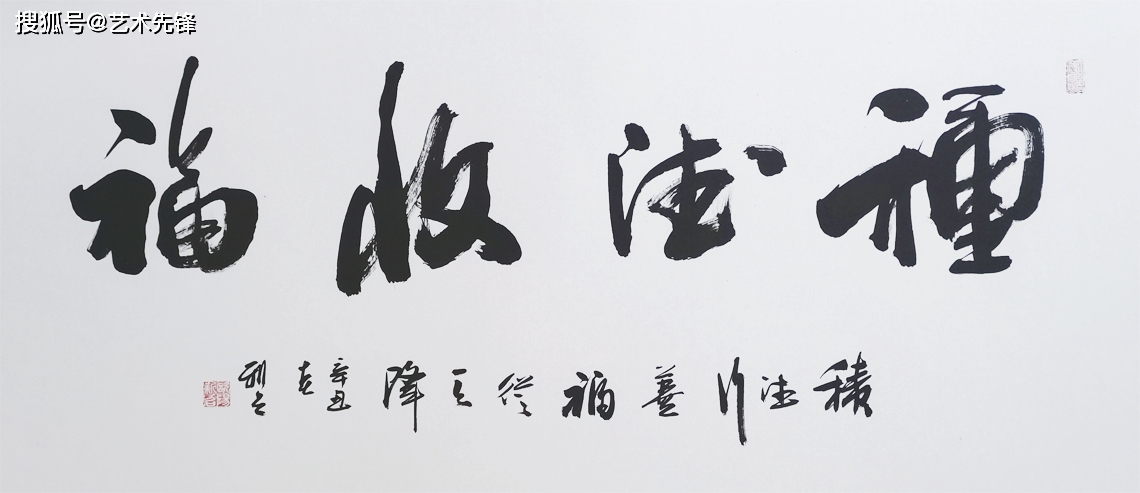 搜狐号@艺术先锋
種德收福
積德行善福從天降
辛丑